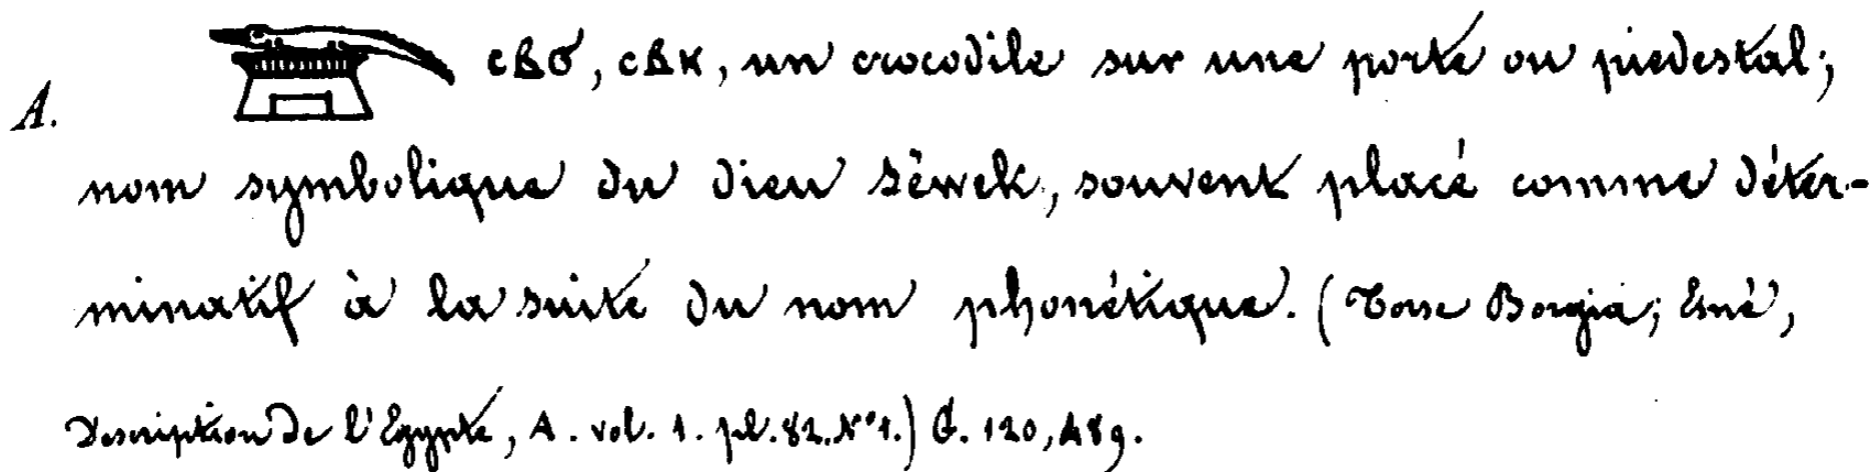 A. ⲥⲃϭ, ⲥⲃⲕ, un crocodile sur une porte ou piedestal;
nom symbolique du dieu Sèwek, souvent placé comme déter-
minatif à la suite du nom phonétique. (Torse Borgia; Esné,
Description de l'Egypte, A. vol. 1. pl. 82. N° 1.) G. 120, 489.